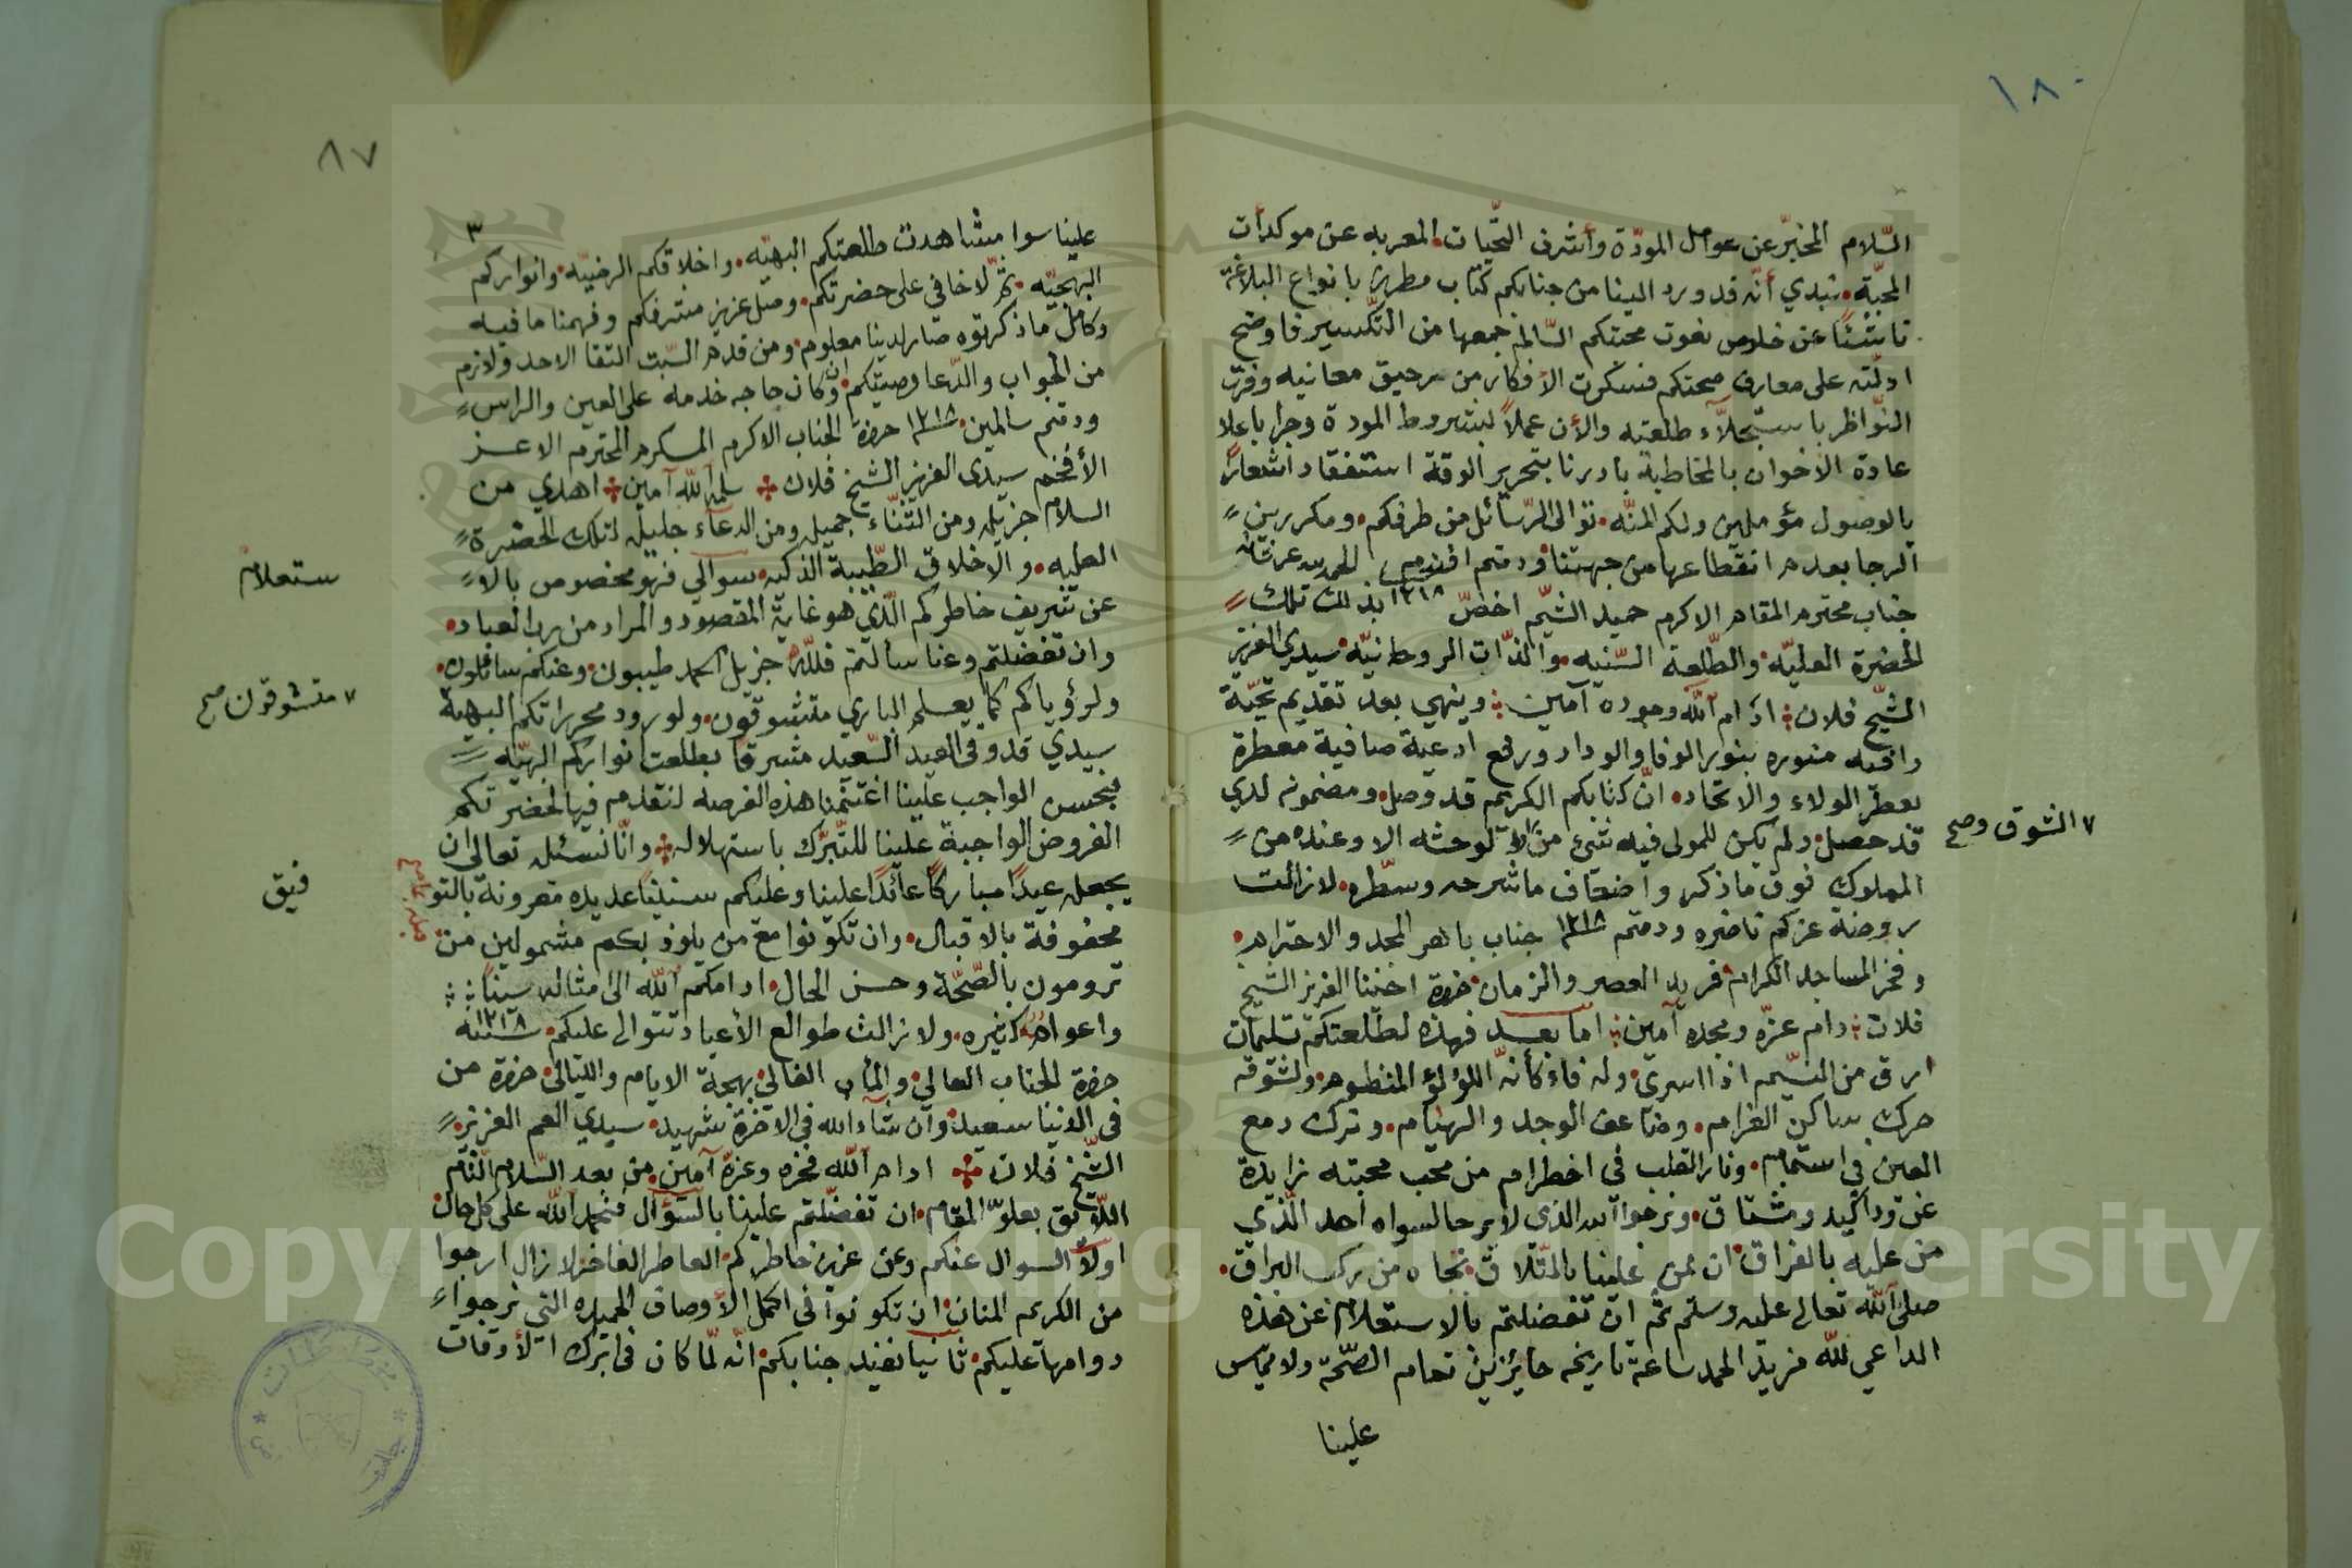 ١٨٠
السّلام المخبّر عن عوامل المودّة وأشرف التحّيات المعربه عن موكدات
المحبّة نبدي أنّه قد ورد الينا من جنابكم كتاب مطرز بانواع البلاغة
ناشئًا عن خلوص نعوت محبتكم السّالم جمعها من التكسير فاوضح
ادلّته على معارف صحتكم فسكرت الأفكار من رحيق معانيه وقرّت
النّواظر باستجلآء طلعته والأن عملاً بشروط المودة وجرا باعلا
عادة الاخوان بالمخاطبة بادرنا بتحرير الوقة استفقاد اشعارًا
بالوصول مؤملين ولكم المنّه توالى الرّسائل من طرفكم ومكررين
الرجا بعدم انقطاعها من جهتنا ودمتم افندم الحمد لله عز شانه
جناب محترم المقام الاكرم حميد الشيّم اخصّ ١٢١٨ بذلك تلك
الحضرة العليّه والطّلعة السّنيه والذّات الروحانيّه سيدي العزيز
الشيّخ فلان ادام آلله وجوده آمين وينهي بعد تقديم تحيّة
وافيه منوره بنور الوفا والوداد ورفع ادعية صافية معطرة
بعطر الولاء والاتحاد انّ كتابكم الكريم قد وصل ومضمونه لدي
قد حصل ولم يكن للمولى فيه شئ من لوحشه الا وعنده من
٧ الشوق وصح
المملوك فوق ما ذكر وأضعاف ما شرحه وسطّره لا زالت
روضة عزكم ناضره ودمتم ١٢١٨ جناب باهر المجد والاحترام
وفخر المساجد الكرام فريد العصر والزمان حضرة اخينا العزيز الشيخ
فلان دام عزّه ومجده آمين امّا بعد فهذه لطلعتكم تسليمات
ارق من النسيّم اذا اسرى وله فاء كأنّه اللؤلؤ المنظوم ولشوقه
حرك ساكن الغرام وضاعف الوجد والهيام وترك دمع
العين في استمام ونار القلب في اضطرام من محب محبته زايدة
عن وداكيد ومشتاق ونرجوا آلله الذي لا يرحا لسواه احد الّذي
من عليه بالفراق ان يمن علينا بالتّلاق بجاه من ركب البراق
صلى آلله تعالى عليه وسلم ثمّ ان تفضلتم بالاستعلام عن هذه
الداعي للّه مزيد الحمد ساعة تاريخه حايزين تمام الصّحة ولا مميّس
علينا
٨٧
علينا سوا مشاهدت طلعتكم البهيّه واخلاقكم الرضيّه وانواركم
البهجيّه ثمّ لا خافي على حضرتكم وصل عزيز مشرفكم وفهمنا ما فيه
وكامل ما ذكرتوه صار لدينا معلوم ومن قدم السّبت التقا الاحد ولازم
من الجواب والدّعا وصيتكم وان كان حاجه خدمه على العين والراس
ودمتم سالمين ١٢١٨ حضرة الجناب الاكرم المكرم المحترم الاعز
الأفخم سيدي العزيز الشيخ فلان سلمه آللّه آمين اهدي من
السلام جزيله ومن الثّنّاء جميله ومن الدعآء جليله لتلك الحضرة
العليه والاخلاق الطّيبة الذكيه سوالي فهو مخصوص بالا
ستعلام
عن شريف خاطركم الّذي هو غاية المقصود والمراد من رب العباد
وان تفضلتم وعنا سألتم فللّه جزيل الحمد طيبون وعنكم سائلون
ولرؤياكم كما يعلم الباري متشوقون ولورود محرراتكم البهية
٧ متشوقون صح
سيدي قد وفى العيد السّعيد مشرقًا بطلعت انواركم البهيّه
فبحسن الواجب علينا اغتنمنا هذه الفرصه لنقدم فيها لحضرتكم
الفروض الواجبة علينا للتّبرّك باستهلاله وانّا نسئله تعالى ان
يجعله عيدًا مباركًا عائدًا علينا وعليكم سنينًا عديده مقرونة بالتو
فيق
محفوفة بالاقبال وان تكونوا مع من يلوذ بكم مشمولين من
ترومون بالصّحّة وحسن الحال ادامكم آللّه الى امثاله سينًا
واعوام كثيره ولا زالت طوالع الأعياد تتوالى عليكم سنه ١٢١٨
حضرة الجناب العالي والمأب الغالي بهجة الايام والليالي حضرة من
في الدنيا سعيد وان شآء الله في الاخرة شهيد سيدي العم العزيز
الشّيخ فلان ادام آللّه فخره وعزة آمين من بعد السّلام التام
اللّائق بعلوّ المقام ان تفضّلتم علينا بالسؤال فنحمد آللّه على كل حال
اولاً السوال عنكم وعن عزيز خاطركم العاطر الفاخر لا زال ارجوا
من الكريم المنان ان تكونوا في اكمل الأوصاف الحميده التي نرجواء
دوامها عليكم ثانيا نفيد جنابكم انّه لمّا كان في ابرك الأوقات
Copyright © King Saud University